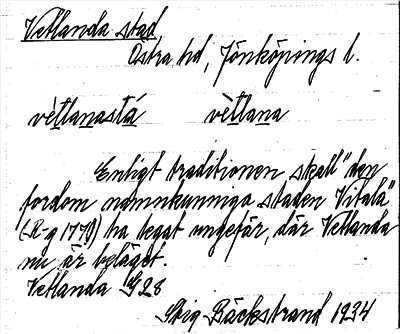 Vetlanda stad
Östra hd, Jönköpings l.
vètlanastá vètlana
Enligt traditionen skall "den
fordom namnkunniga staden Vitala"
(R-g 1770) ha legat ungefär, där Vetlanda
nu är beläget.
Vetlanda G28
Stig Bäckstrand 1934